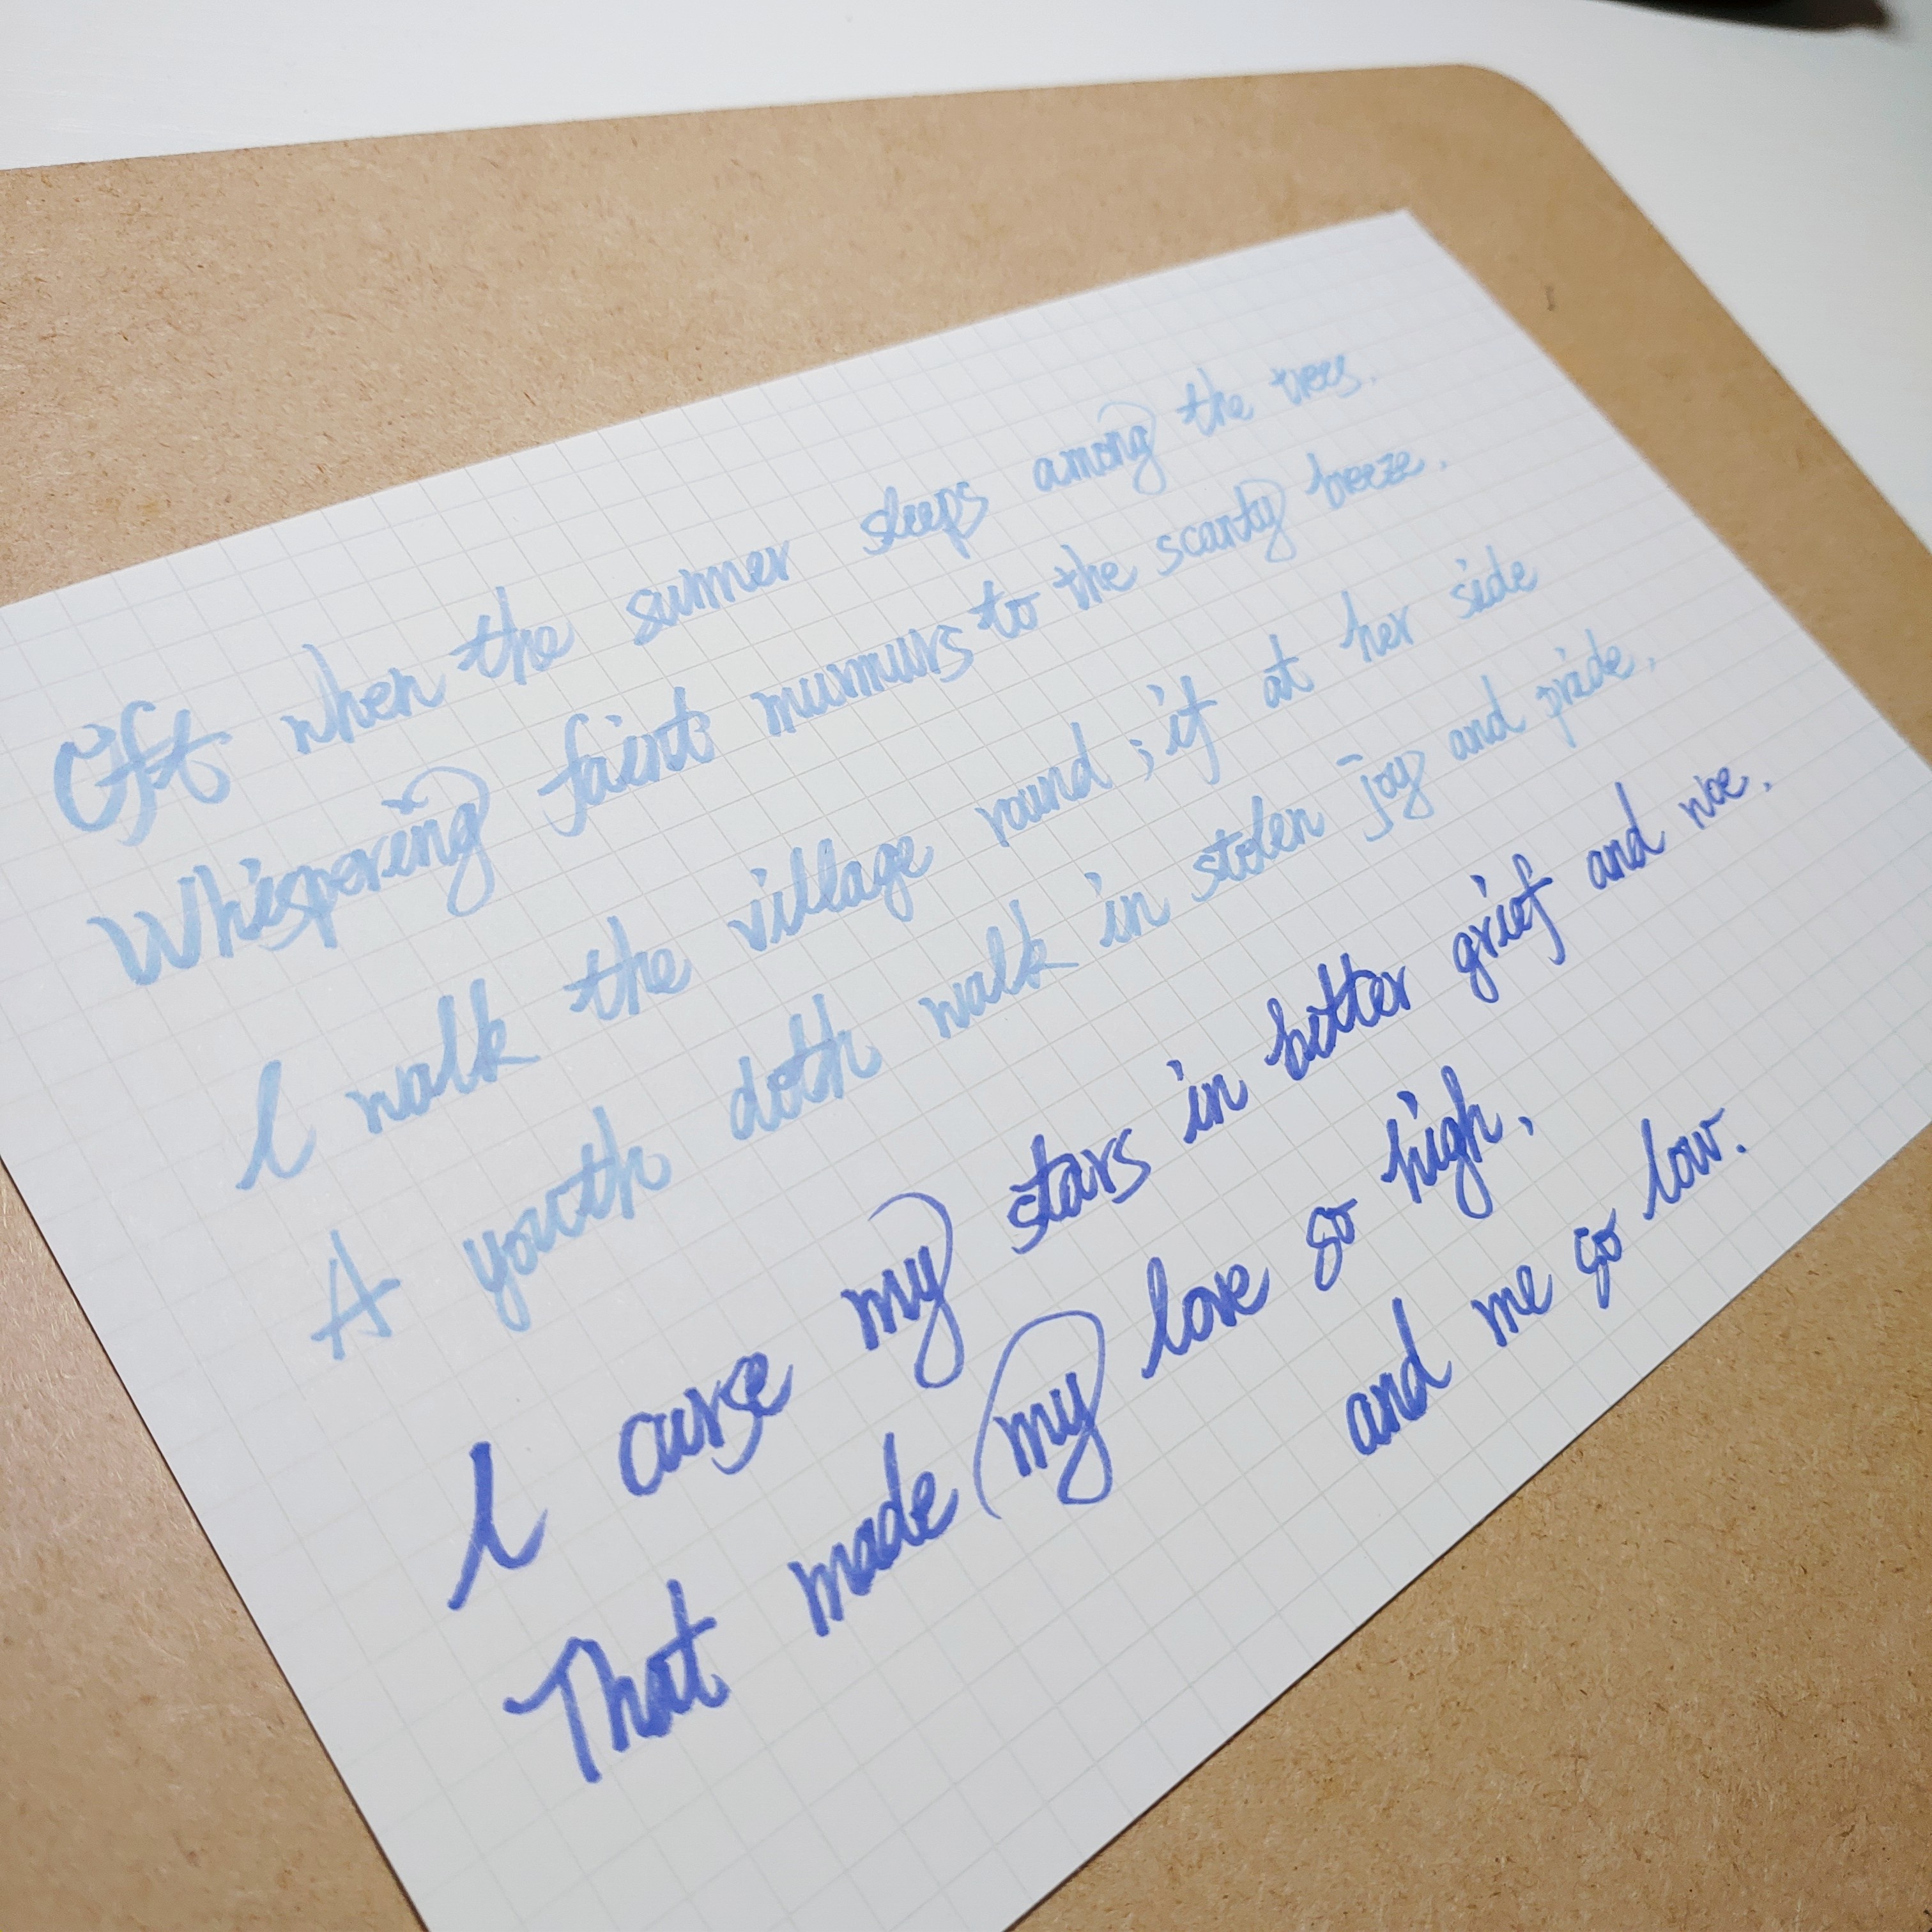 Oft when the summer sleeps among the trees,
Whispering faint murmurs to the scanty breeze,
I walk the village round; if at her side
A youth doth walk in stolen joy and pride,
I curse my stars in bitter grief and woe,
That made my love so high,
and me so low.